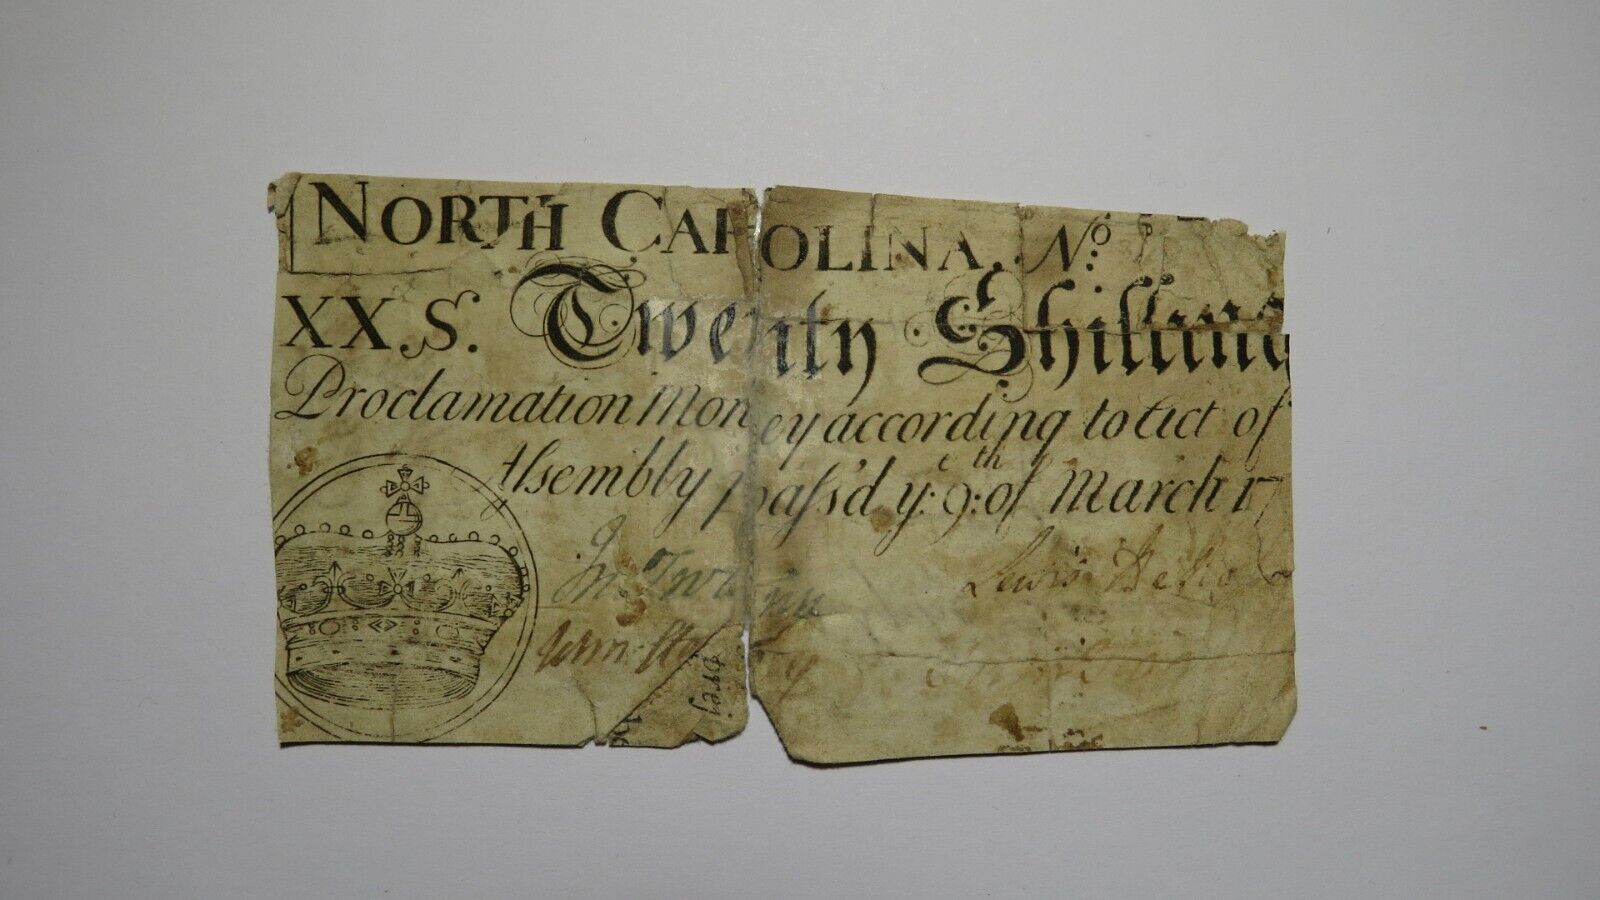 NORTH CAROLINA. No:
XX.S. Twenty Shilling
Proclamation Money according to Act of
Assembly pass'd ye: 9th: of March 17
Lewis